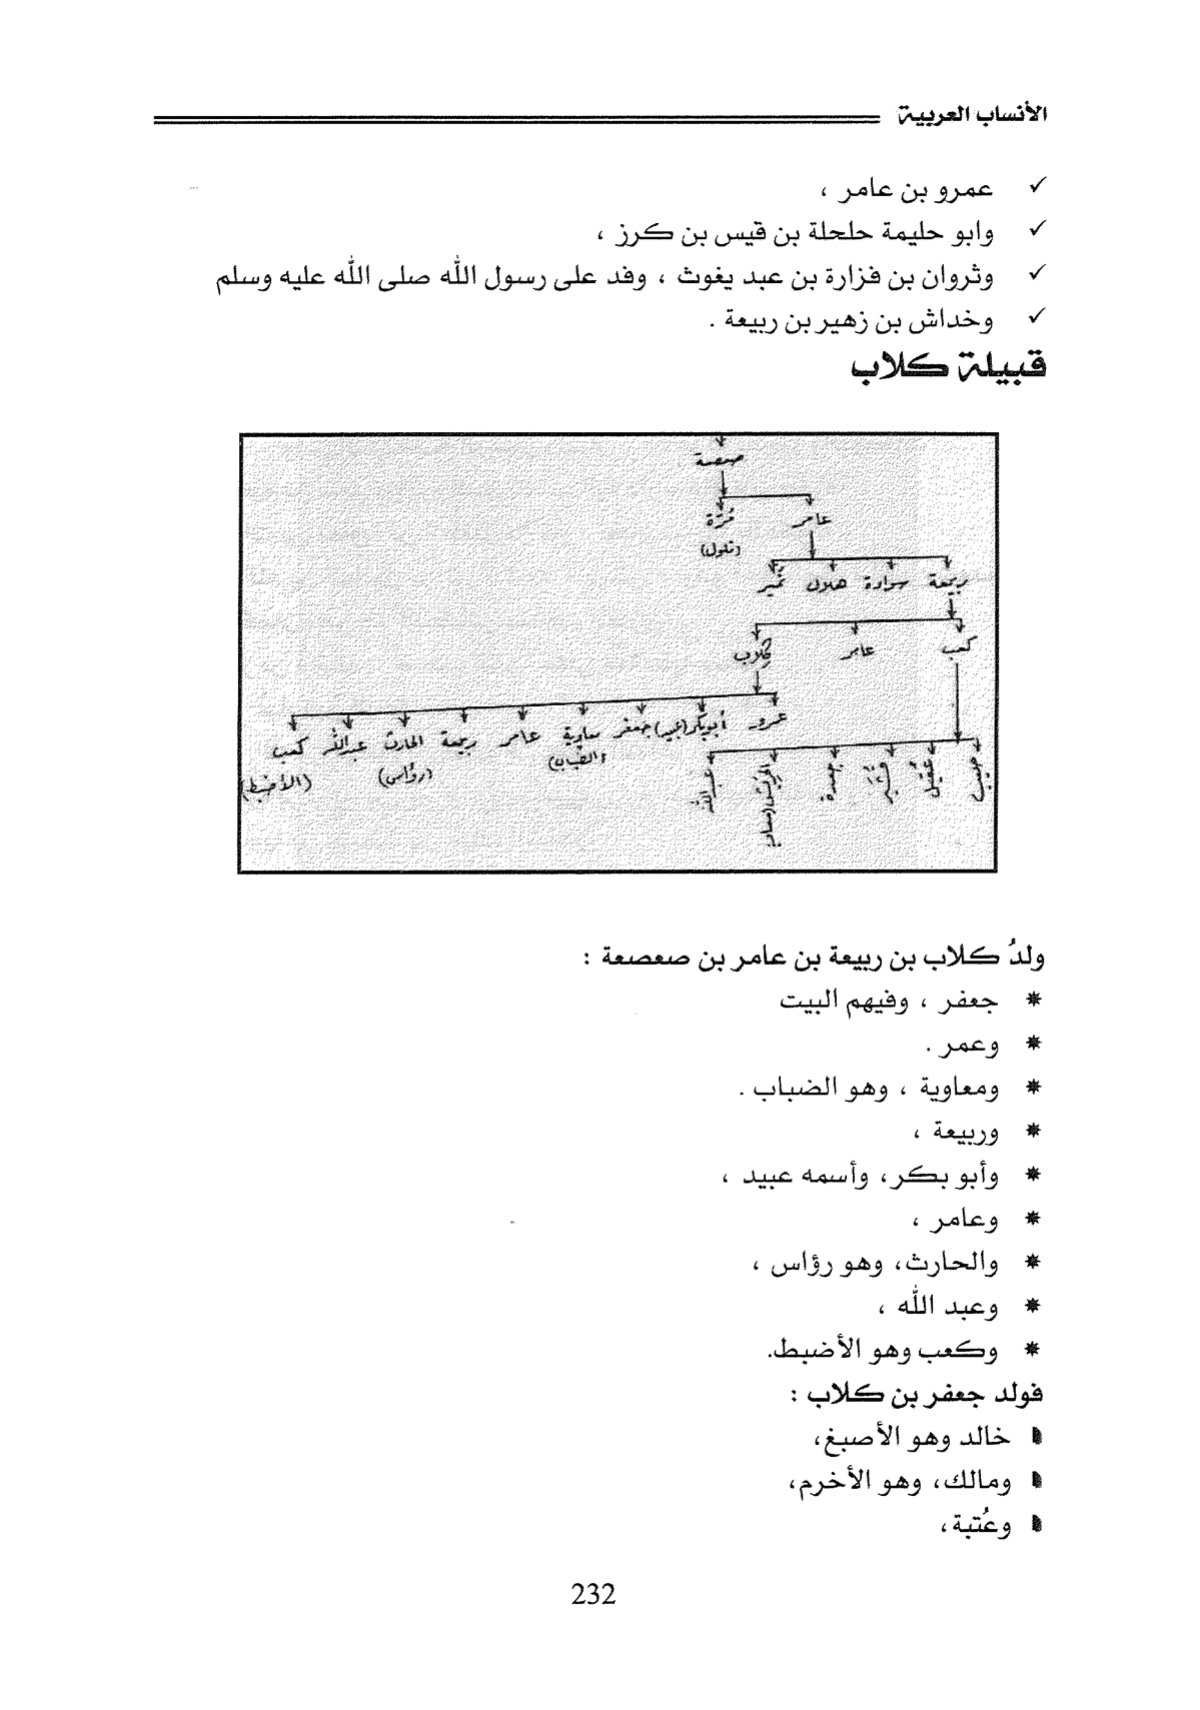 الأنساب العربية
✓ عمرو بن عامر ،
✓ وابو حليمة حلحلة بن قيس بن كرز ،
✓ وثروان بن فزارة بن عبد يغوث ، وفد على رسول الله صلى الله عليه وسلم
✓ وخداش بن زهير بن ربيعة .
قبيلة كلاب
صعصعة
عامر مُرّة
(سلول)
ربيعة سوادة هلال نُمَير
كعب عامر كلاب
عمرو أبوبكر (عبيد) جعفر معاوية عامر ربيعة الحارث عبدالله كعب
(الضباب) (رؤاس) (الأضبط)
حبيب عُقيل قُشَير جعدة الحَرِيش عبدالله
ولدُ كلاب بن ربيعة بن عامر بن صعصعة :
* جعفر ، وفيهم البيت
* وعمر .
* ومعاوية ، وهو الضباب .
* وربيعة ،
* وأبو بكر، وأسمه عبيد ،
* وعامر ،
* والحارث، وهو رؤاس ،
* وعبد الله ،
* وكعب وهو الأضبط.
فولد جعفر بن كلاب :
خالد وهو الأصبغ،
ومالك، وهو الأخرم،
وعُتبة،
232